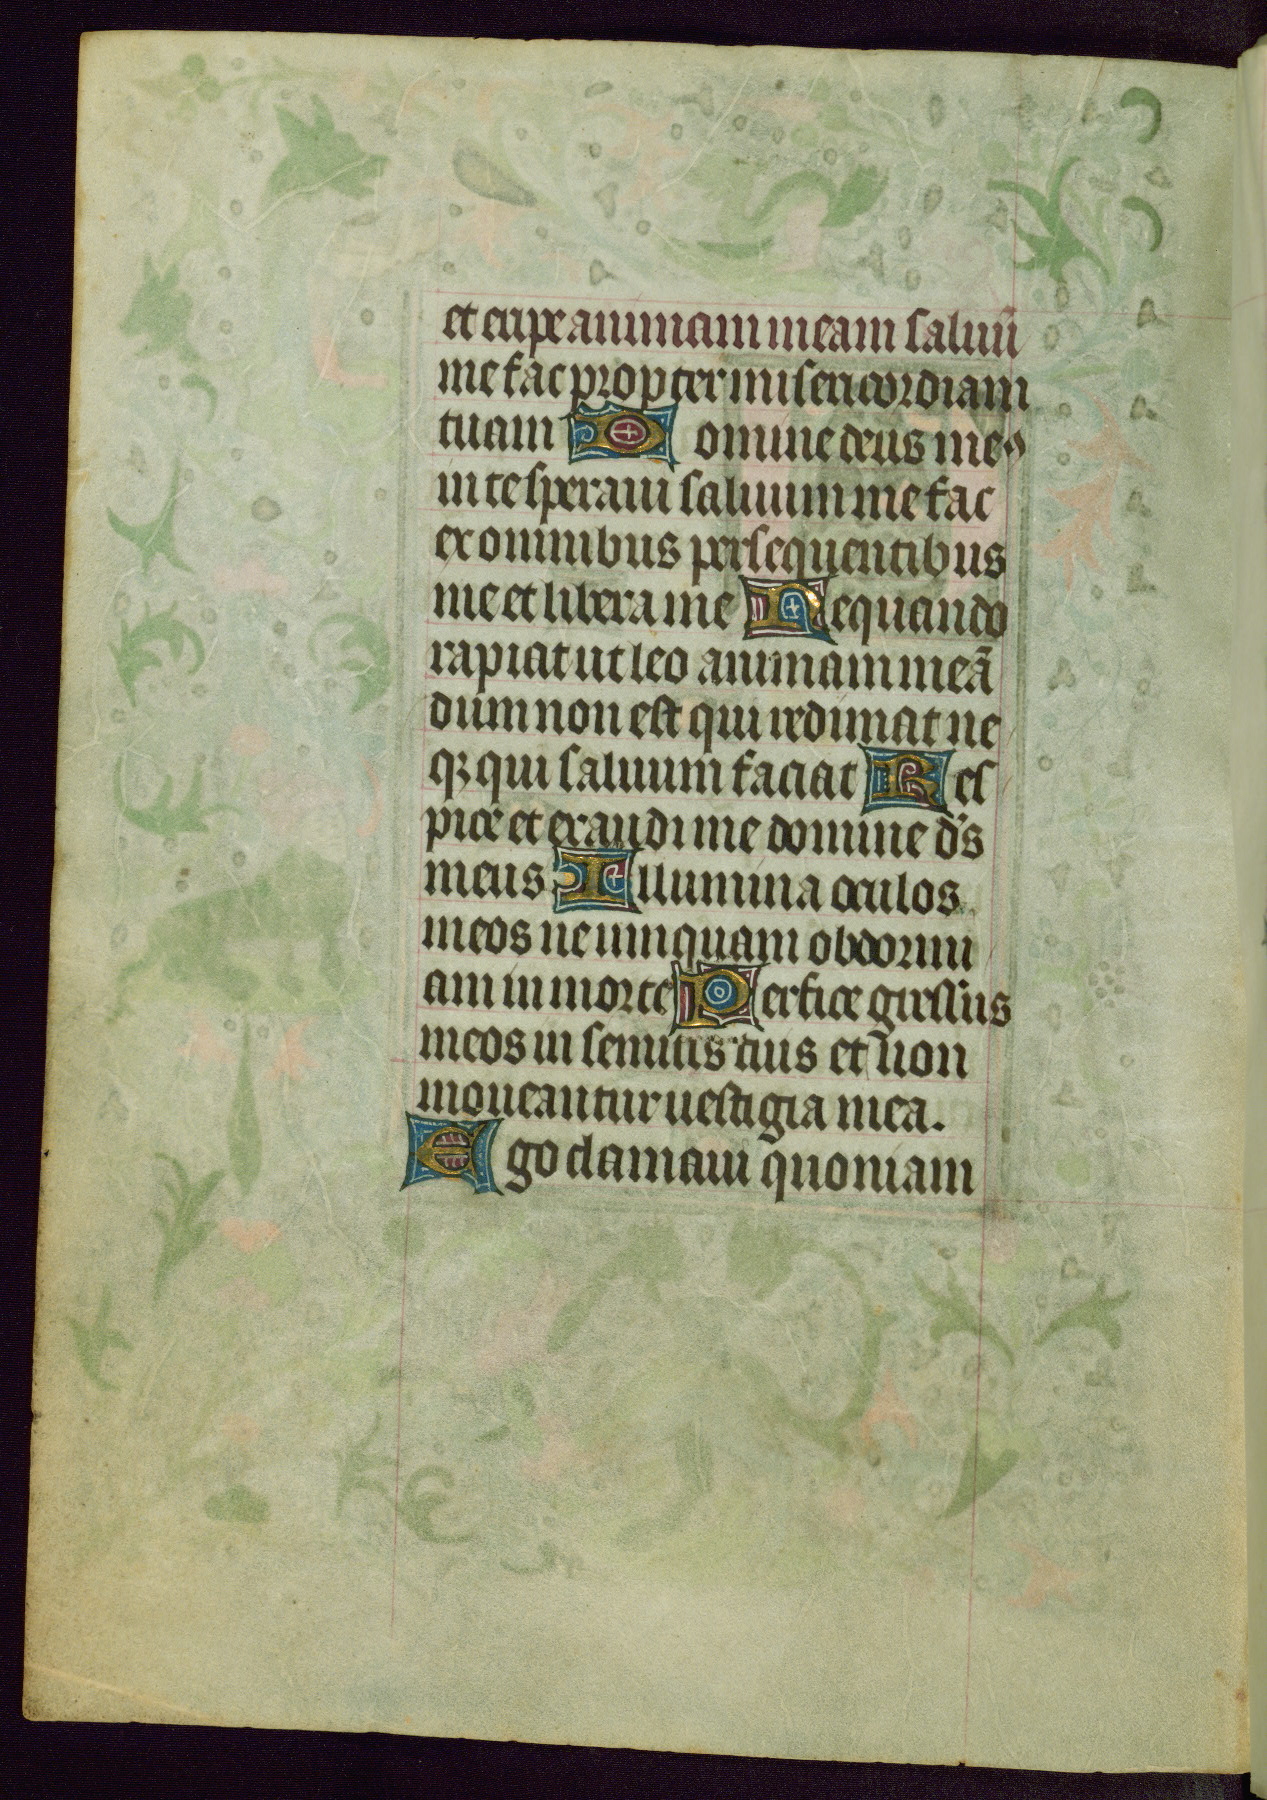 et eripe animam meam saluū
me fac propter misericordiam
tuam Domine deus meꝰ
in te speraui saluum me fac
ex omnibus persequentibus
me et libera me Nequando
rapiat ut leo animam meā
dum non est qui redimat ne
qꝫ qui saluum faciat Res
pice et exaudi me domine d̄s
meus Illumina oculos
meos ne umquam obdormi
am in morte Perfice gressus
meos in semitis tuis et non
moueantur uestigia mea.
Ego clamaui quoniam